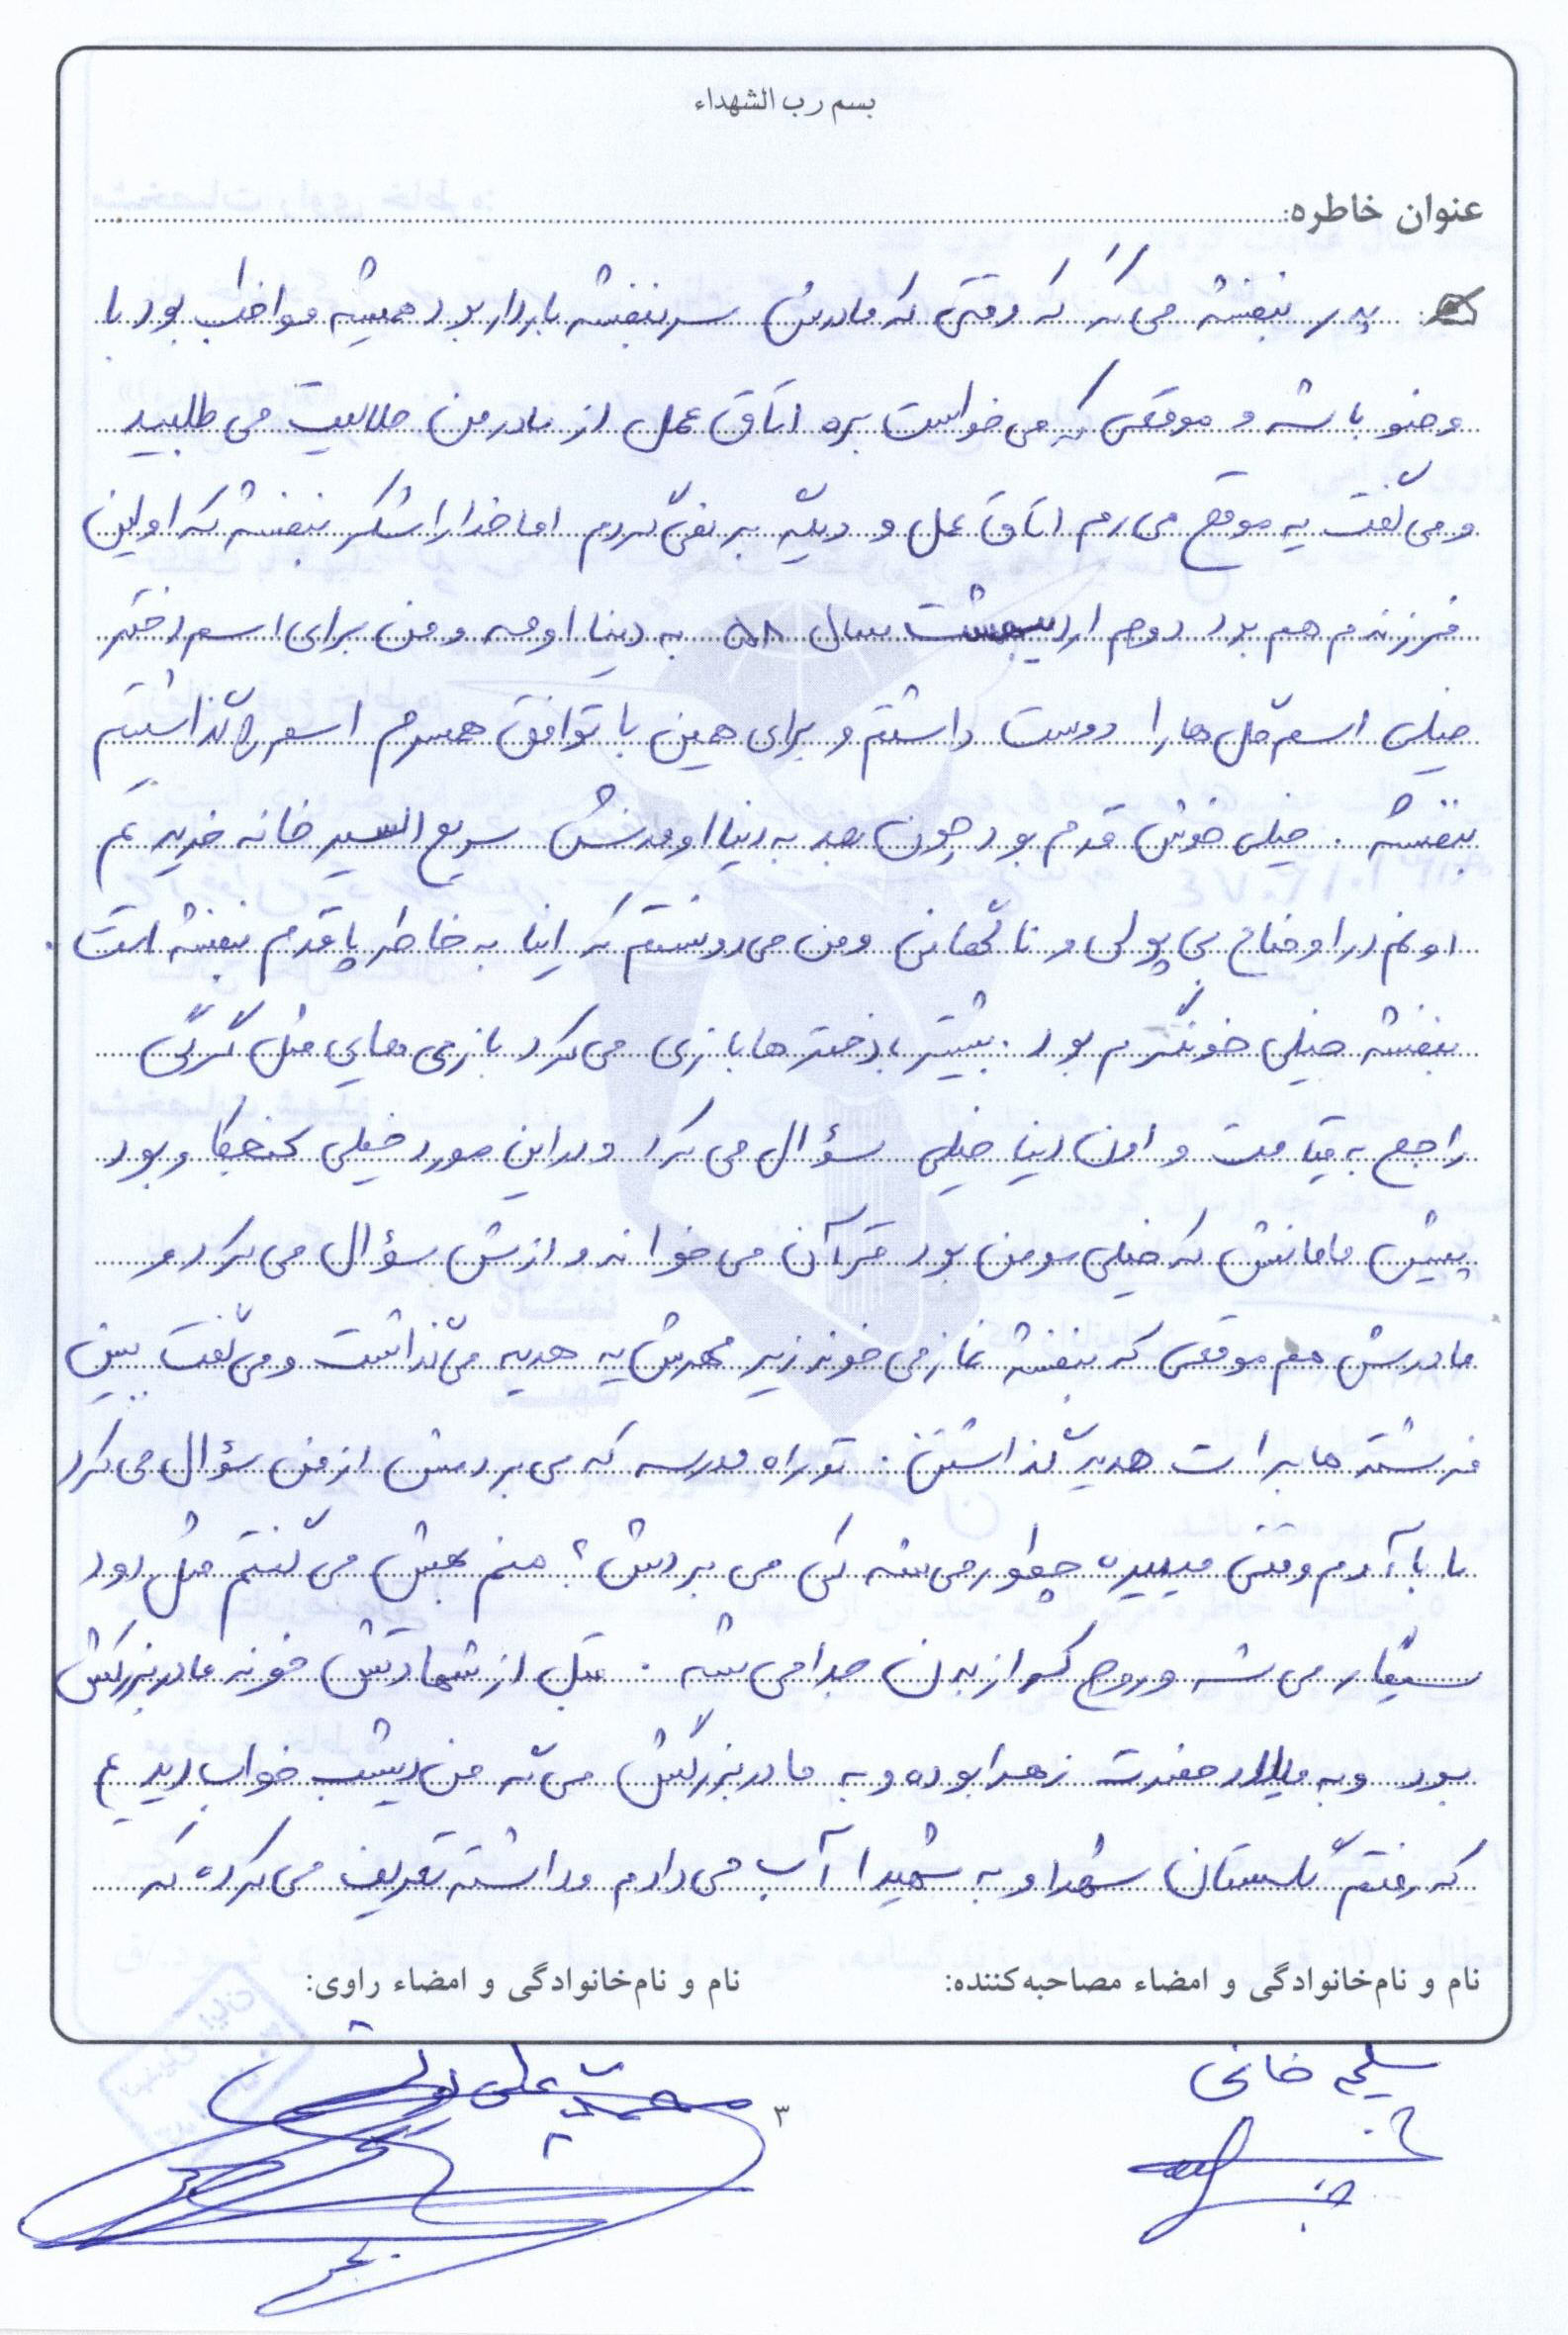 بسم رب الشهداء
عنوان خاطره:
پدر بنفشه می گه که وقتی که مادرش سر بنفشه باردار بود همیشه مواظب بود با
وضو باشه و موقعی که می خواست بره اتاق عمل از مادر من حلالیت می طلبید
و می گفت یه موقع می رم اتاق عمل و دیگه بر نمی گردم اما خدا را شکر بنفشه که اولین
فرزندم هم بود دوم اردیبهشت سال ۵۸ به دنیا اومد و من برای اسم دختر
خیلی اسم گل ها را دوست داشتم و برای همین با توافق همسرم اسمش را گذاشتیم
بنفشه . خیلی خوش قدم بود چون بعد به دنیا اومدنش سریع السیر خانه خریدیم
اونم در اوضاع بی پولی و ناگهانی و من می دونستم که اینا به خاطر پا قدم بنفشه است .
بنفشه خیلی خونگرم بود . بیشتر با دخترها بازی می کرد بازی هایی مثل گرگی
راجع به قیامت و اون دنیا خیلی سؤال می کرد و در این مورد خیلی کنجکاو بود
پیش مامانش که خیلی مومن بود قرآن می خواند و ازش سؤال می کرد و
مادرش هم موقعی که بنفشه نماز می خوند زیر مهرش یه هدیه می گذاشت و می گفت ببین
فرشته ها برات هدیه گذاشتن . تو راه مدرسه که می بردمش از من سؤال می کرد
بابا آدم وقتی میمیره چطور می شه کی می بردش ؟ منم بهش می گفتم مثل دود
سیگار می شه و روح کم از بدن جدا می شه . قبل از شهادتش خونه مادربزرگش
بود و به میلاد حضرت زهرا بوده و به مادربزرگش می گه من دیشب خواب دیدم
که رفتم گلستان شهدا و به شهیدا آب می دادم و داشته تعریف می کرده که
نام و نام خانوادگی و امضاء مصاحبه کننده:
نام و نام خانوادگی و امضاء راوی:
سلیمه خانی
محمد علی
۳